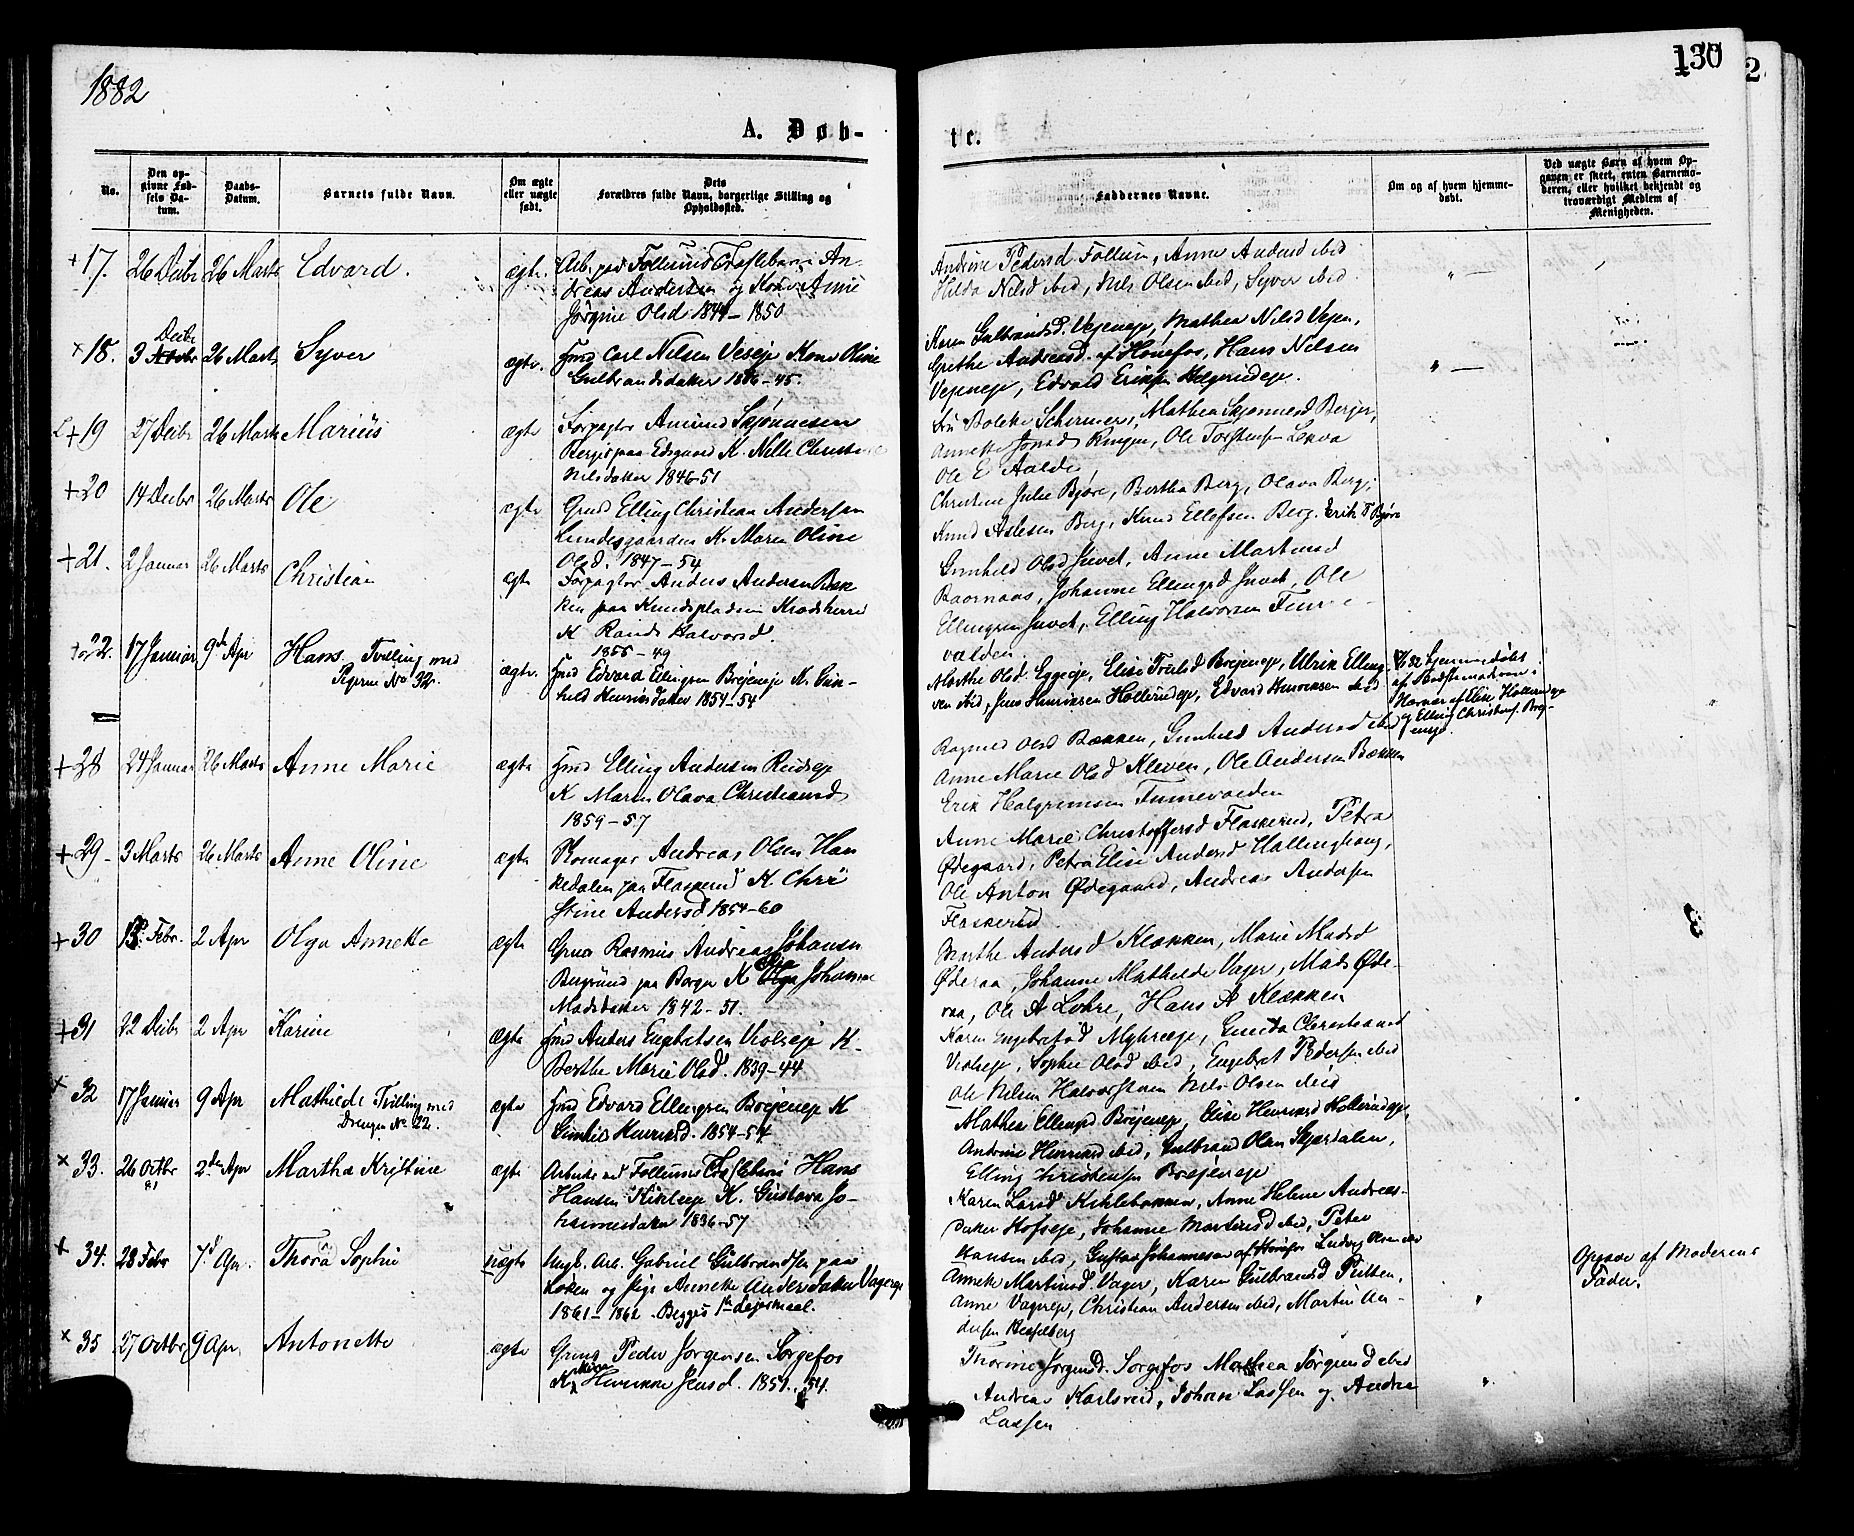 1882
130
2
A. Døb-
te.
No.
Den op-
givne Fød-
sels Da-
tum.
Daabs-
Datum.
Barnets fulde Navn.
Om ægte
eller uægte
født.
Dets
Forældres fulde Navn, borgerlige Stilling og
Opholdssted.
Faddernes Navne.
Om og af hvem hjemme-
døbt.
Ved uægte Barn af hvem Op-
gaven er skeet, enten Barnemo-
deren, eller hvilket bekjendt og
troværdigt Medlem af
Menigheden.
+17. 26 Decbr 26 Marts Edvard. ægte. Arb. paa Follum Træsliberi An-
dreas Andersen og Kone Anne
Jørgine Olsd 1849-1850
Andrine Pedersd Follum, Anne Andersd ibid
Hilda Nilsd ibid, Nils Olsen ibid, Syver ibid
×18. 3 Decbr 26 Marts Syver ægte. Hmd Carl Nilsen Veseje Kone Oline
Gulbrandsdatter 1846-45.
Karen Gulbrandsd. Vejeneje, Mathea Nilsd Vejen,
Grethe Andreasd. af Hønefos, Hans Nilsen
Vejeneje, Edvald Eriksen Helgerudeje.
+19 27 Decbr 26 Marts Marius ægte Forpagter Amund Skjønnesen
Berger paa K. Nille Christine
Nilsdatter 1846-51
Mathea Skjønnesd Berger,
Annette Ringen, Ole Torstensen
Ole E
+20 14 Decbr 26 Marts Ole ægte Grmd Elling Christian Andersen
Lundesgaarden K. Maren Oline
Olsd. 1847-54
Christine Julie Bjøre, Bertha Berg, Olava Berg,
Knud Aslesen Berg, Knud Ellefsen Berg. Erik T Bjøre
+21. 2 Januar 26 Marts Christian ægte Forpagter Anders Andersen Bak-
ken paa Kradsherred
K Halvorsd.
1855-49
Gunhild Olsd Juvet, Anne Martinsd
Johanne Ellingsd Juvet, Ole
Ellingsen Juvet, Elling Halvorsen Finne-
valden.
22. 17 Januar 9de Apr Hans, Tvilling med
Pigen No 32. ægte. Hmd Edvard Ellingsen Brejeneje K. Gun-
hild Henriksdatter 1854-54
Marthe Olsd Eggeeje, Elise Brejeneje, Ulrik Elling-
sen ibid, Jens Henriksen Hollerudeje, Edvard Henriksen ibid
No 32 hjemmedøbt
af
af Elise Hollerudeje
og Elling Christens. Brej-
eneje.
+28 24 Januar 26 Marts Anne Marie ægte Hmd Elling Andersen
K Maren Olava Christiansd
1859-57
Ragnild Olsd Bakken, Gunhild Andersd ibid
Anne Marie Olsd Kleven, Ole Andersen Bækken
Erik Halgrimsen Finnevolden
+29- 3 Marts 26 Marts Anne Oline ægte Andreas Olsen Han-
kedalen paa Flaskerud K. Chri-
stine Andersd 1854-60
Anne Marie Christoffersd Flaskerud, Petra
Ødegaard, Petra Elise Andersd Hallinghaug,
Ole Anton Ødegaard, Andreas Andersen
Flaskerud
+30 Febr. 2 Apr Olga Annette ægte Grmd Rasmus Andreas Johansen
paa Berger K Johanne
Madsdatter 1842-51.
Marthe Andersd Klækken, Marie Madsd
Øderaa, Johanne Mathilde Vager, Mads Øde-
raa, Ole A Lohre, Hans A Klækken
+31 22 Decbr 2 Apr Karine ægte Hmd Anders Engebretsen Violseje K.
Berthe Marie Olsd. 1839-44
Karen Engebretsd Myhreeje, Gunda Christiansd
Violseje, Sophie Olsd ibid, Engebret Pedersen ibid
Ole Nilsen Nils Olsen ibid
× 32 17 Januar 9 Apr Mathilde Tvilling med
Drengen No 22. ægte Hmd Edvard Ellingsen Brejeneje K
Gunhild Henriksd. 1854-54
Mathea Ellingsd Brejeneje, Elise Henriksd Hollerudeje,
Antonie Henriksd ibid, Gulbrand Olsen Skjærdalen,
Elling Christensen Brejeneje
× 33. 26 Octbr 81 2den Apr Martha Kristine ægte Arbeider ved Follums Træsliberi Hans
Hansen K. Gustava Jo-
hannesdatter 1836-57
Karen Larsd Anne Helene Andreas-
datter Hofseje, Johanne Martinsd ibid, Peter
Hansen ibid, Gustav Johannesen af Hønefos Ludvig Olsen
× 34. 28 Febr 7d Apr. Thora Sophie uægte Ungk. Arb. Gabriel Gulbrandsen paa
og Pige Annette Andersdatter Vagereje
1861-1862. Begges 1te Lejermaal.
Annette Martinsd. Vager, Karen Gulbrandsd Putten,
Anne Vagereje, Christian Andersen ibid, Martin An-
dersen Hesselberg
Opgave af Moderens
Fader.
× 35 27 Octbr 9 Apr. Antonette ægte Grmd Peder Jørgensen Sørgefos
K Jensd. 1851.-54.
Thorine Jørgensd. Sørgefos Mathea Jørgensd ibid
Andreas Karlsrud, Johan Lassen og Andre
Lassen